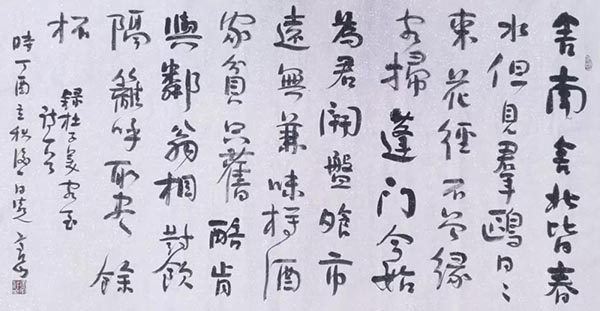 舍南舍北皆春
水但見羣鷗日〻
來花徑不曾緣
客掃蓬門今始
為君開盤飧市
遠無兼味樽酒
家貧只舊醅肯
與鄰翁相對飲
隔籬呼取盡餘
杯
錄杜子美客至
詩一首
時丁酉立秋後一日